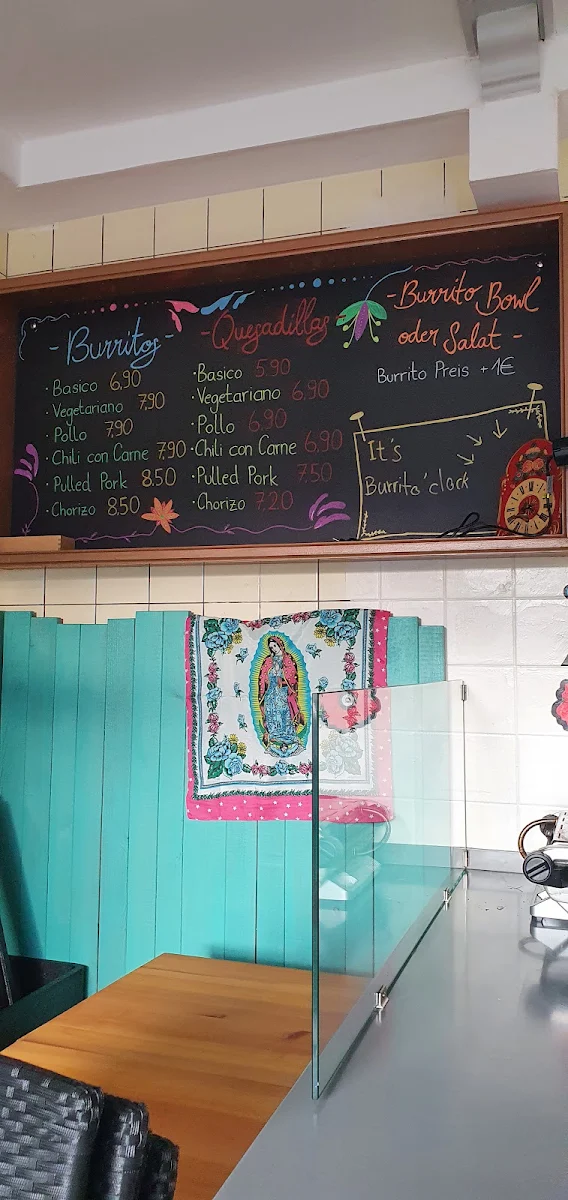 - Burritos -
· Basico 6,90
· Vegetariano 7,90
· Pollo 7,90
· Chili con Carne 7,90
· Pulled Pork 8,50
· Chorizo 8,50
- Quesadillas
· Basico 5.90
· Vegetariano 6,90
· Pollo 6,90
· Chili con Carne 6,90
· Pulled Pork 7,50
· Chorizo 7,20
- Burrito Bowl
oder Salat -
Burrito Preis +1€
It's
Burrito'clock